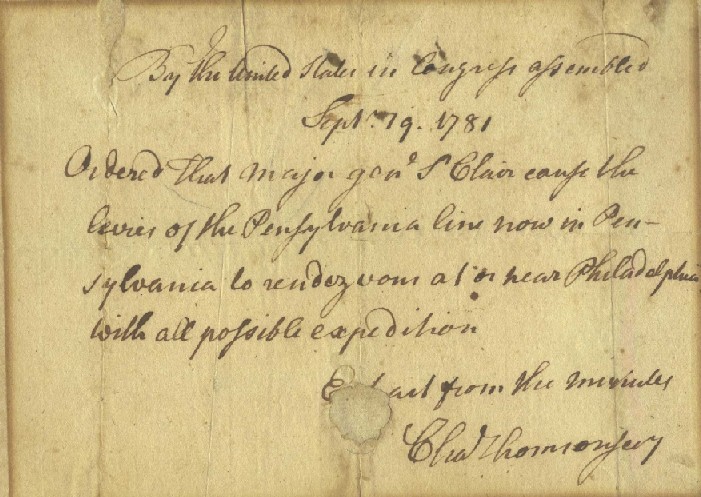 By the United States in Congress assembled
Septr. 19. 1781
Ordered That major genl St Clair cause the
levies of the Pensylvania line now in Pen-
sylvania to rendezvous at or near Philadelphia
with all possible expedition
Extract from the minutes
Chas Thomson secy